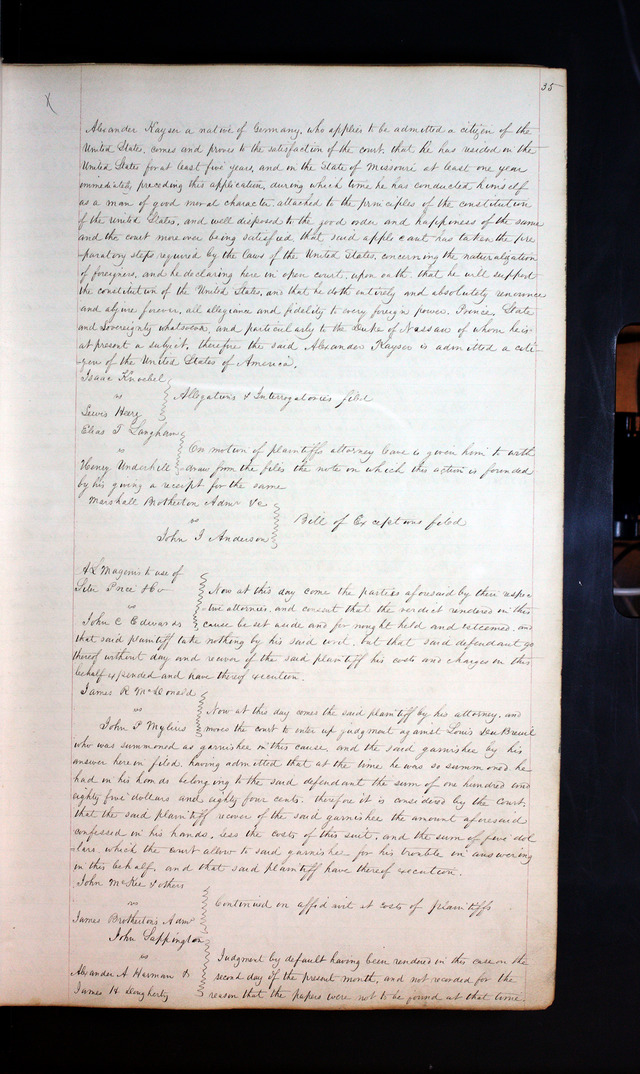 35
X
Alexander Kayser a native of Germany, who applies to be admitted a citizen of the
United States, comes and proves to the satisfaction of the court, that he has resided in the
United States for at least five years, and in the State of Missouri at least one year
immediately preceding this application, during which time he has conducted himself
as a man of good moral character, attached to the principles of the constitution
of the United States, and well disposed to the good order and happiness of the same
and the court moreover being satisfied that said applicant has taken the pre
-paratory steps required by the laws of the United States, concerning the naturalization
of foreigners, and he declaring here in open court, upon oath that he will support
the constitution of the United States, and that he doth entirely and absolutely renounce
and abjure forever, all allegiance and fidelity to every foreign power, Prince, State
and sovereignty whatsoever, and particularly to the Duke of Nassau of whom he is
at present a subject, therefore the said Alexander Kayser is admitted a citi-
zen of the United States of America.
Isaac Knoebel
vs
Allegations & Interrogatories filed
Lewis
Elias T Langham
vs
On motion of plaintiffs attorney leave is given him to with
Henry Underhill
-draw from the files the note on which this action is founded
by his giving a receipt for the same
Marshall Brotherton Admr &c
vs
Bill of Exceptions filed
John J Anderson
A L Magenis to use of
Price & Co
Now at this day come the parties aforesaid by their respec
vs
-tive attornies, and consent that the verdict rendered in this
John C Edwards
cause be set aside and for nought held and esteemed, and
that said plaintiff take nothing by his said writ, but that said defendant go
thereof without day and recover of the said plaintiff his costs and charges in this
behalf expended and have thereof execution.
James R McDonald
vs
Now at this day comes the said plaintiff by his attorney, and
John P Mylius
moves the court to enter up judgment against Louis DuBreuil
who was summoned as garnishee in this cause, and the said garnishee by his
answer herein filed, having admitted that at the time he was so summoned he
had in his hands belonging to the said defendant the sum of one hundred and
eighty five dollars and eighty four cents. therefore it is considered by the Court,
that the said plaintiff recover of the said garnishee the amount aforesaid
confessed in his hands, less the costs of this suit, and the sum of five dol
-lars which the court allow to said garnishee for his trouble in answering
in this behalf, and that said plaintiff have thereof execution.
John McKee & others
vs
Continued on affidavit at costs of plaintiffs
James Brotherton's Admr
John Sappington
vs
Judgment by default having been rendered in this case on the
Alexander A Harman &
second day of the present month, and not recorded for the
James H Dougherty
reason that the papers were not to be found at that time